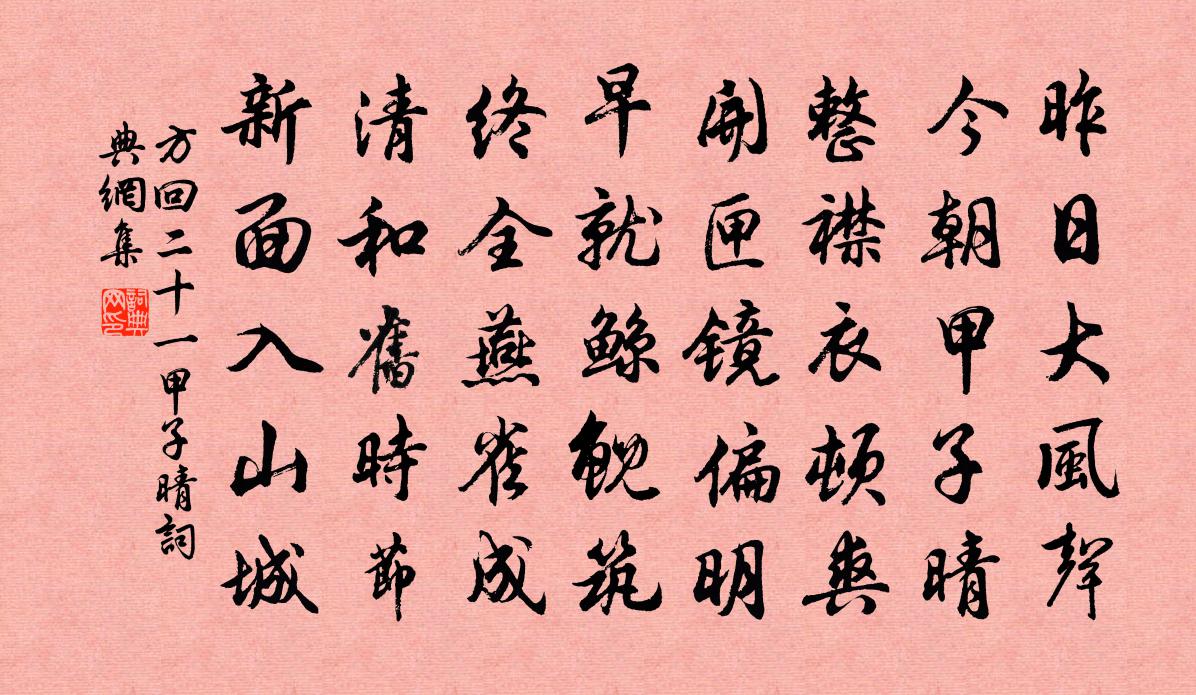 昨日大風聲
今朝甲子晴
整襟衣頓爽
開匣镜偏明
早就鲸鲵筑
终全燕雀成
清和舊時節
新面入山城
方回二十一甲子晴詞
典網集
詞典
网印